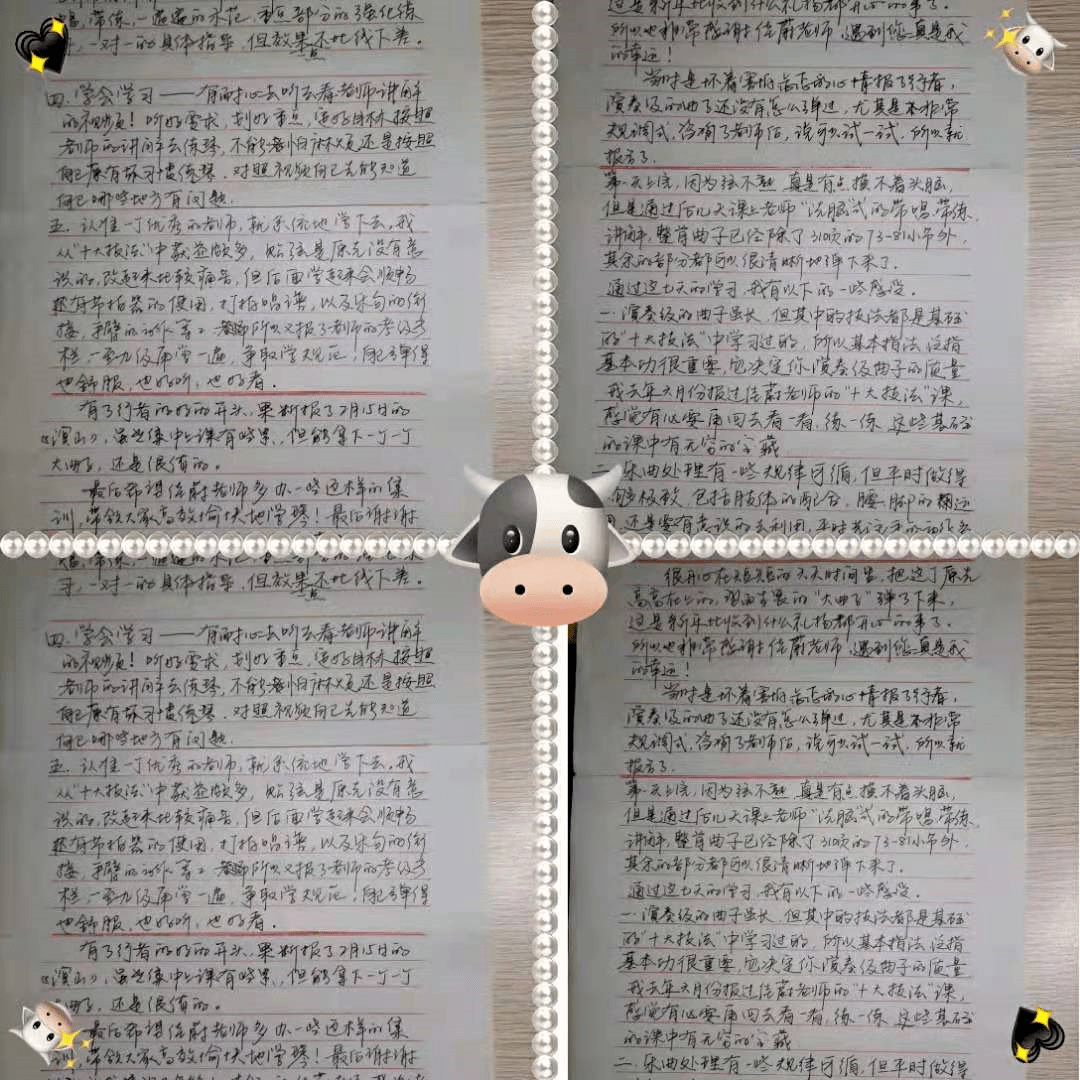 唱、带练，一遍遍的示范，重点部分的强化练
习，一对一的具体指导，但效果不比线下差。
四、学会学习——有耐心去听去看老师讲解
的视频！听好要求，划好重点，
老师的讲解去练琴，不能怕麻烦还是按照
自己原有坏习惯练琴．对照视频自己先能知道
自己哪些地方有问题．
五．认准一个优秀的老师，就系统地学下去。我
从“十大技法”中获益颇多，贴弦是原先没有意
识的，改起来比较痛苦，但后面学起来会顺畅
还有节拍器的使用，打拍唱谱，以及乐句的衔
接，手臂的动作等；所以又报了老师的考级考
栏，一至九级再学一遍，争取学规范，自己弹得
也舒服，也好听，也好看。
有了行者的好的开头，果断报了2月15日的
大曲子，还是很值的。
最后希望佳蔚老师多办一些这样的集
训，带领大家高效愉快地学琴！最后谢谢
这是新年比收到什么礼物都开心的事了。
所以也非常感谢佳蔚老师，遇到您真是我
的幸运！
当时是怀着害怕忐忑的心情报了行者，
演奏级的曲子还没有怎么弹过，尤其是本非常
规调式，咨询了老师后，说可以试一试，所以就
报名了．
第一天上完，因为弦不熟，真是有点摸不着头脑，
但是通过后几天课上老师“洗脑式”的带唱、带练、
讲解，整首曲子已经除了310页的73-81小节外，
其余的部分都可以很清晰地弹下来了．
通过这七天的学习，我有以下的一些感受。
一．演奏级的曲子虽长，但其中的技法都是基础
的“十大技法”中学习过的，所以基本指法、
基本功很重要，它决定你演奏级曲子的质量
我去年六月份报过佳蔚老师的“十大技法”课，
感觉有必要再回去看一看，练一练，这些基础
的课中有无穷的宝藏
二．乐曲处理有一些规律可循，但平时做得
不够极致，包括肢体的配合，腰、脚的
还是要有意识的去利用，
唱、带练，一遍遍的示范，重点部分的强化练
习，一对一的具体指导，但效果不比线下差。
四、学会学习——有耐心去听去看老师讲解
的视频！听好要求，划好重点，
老师的讲解去练琴，不能怕麻烦还是按照
自己原有坏习惯练琴．对照视频自己先能知道
自己哪些地方有问题．
五．认准一个优秀的老师，就系统地学下去。我
从“十大技法”中获益颇多，贴弦是原先没有意
识的，改起来比较痛苦，但后面学起来会顺畅
还有节拍器的使用，打拍唱谱，以及乐句的衔
接，手臂的动作等；所以又报了老师的考级考
栏，一至九级再学一遍，争取学规范，自己弹得
也舒服，也好听，也好看。
有了行者的好的开头，果断报了2月15日的
大曲子，还是很值的。
最后希望佳蔚老师多办一些这样的集
训，带领大家高效愉快地学琴！最后谢谢
很开心在短短的七天时间里，把这个原先
高高在上的，望而生畏的“大曲子”弹了下来，
这是新年比收到什么礼物都开心的事了。
所以也非常感谢佳蔚老师，遇到您真是我
的幸运！
当时是怀着害怕忐忑的心情报了行者，
演奏级的曲子还没有怎么弹过，尤其是本非常
规调式，咨询了老师后，说可以试一试，所以就
报名了．
第一天上完，因为弦不熟，真是有点摸不着头脑，
但是通过后几天课上老师“洗脑式”的带唱、带练、
讲解，整首曲子已经除了310页的73-81小节外，
其余的部分都可以很清晰地弹下来了．
通过这七天的学习，我有以下的一些感受。
一．演奏级的曲子虽长，但其中的技法都是基础
的“十大技法”中学习过的，所以基本指法、
基本功很重要，它决定你演奏级曲子的质量
我去年六月份报过佳蔚老师的“十大技法”课，
感觉有必要再回去看一看，练一练，这些基础
的课中有无穷的宝藏
二．乐曲处理有一些规律可循，但平时做得